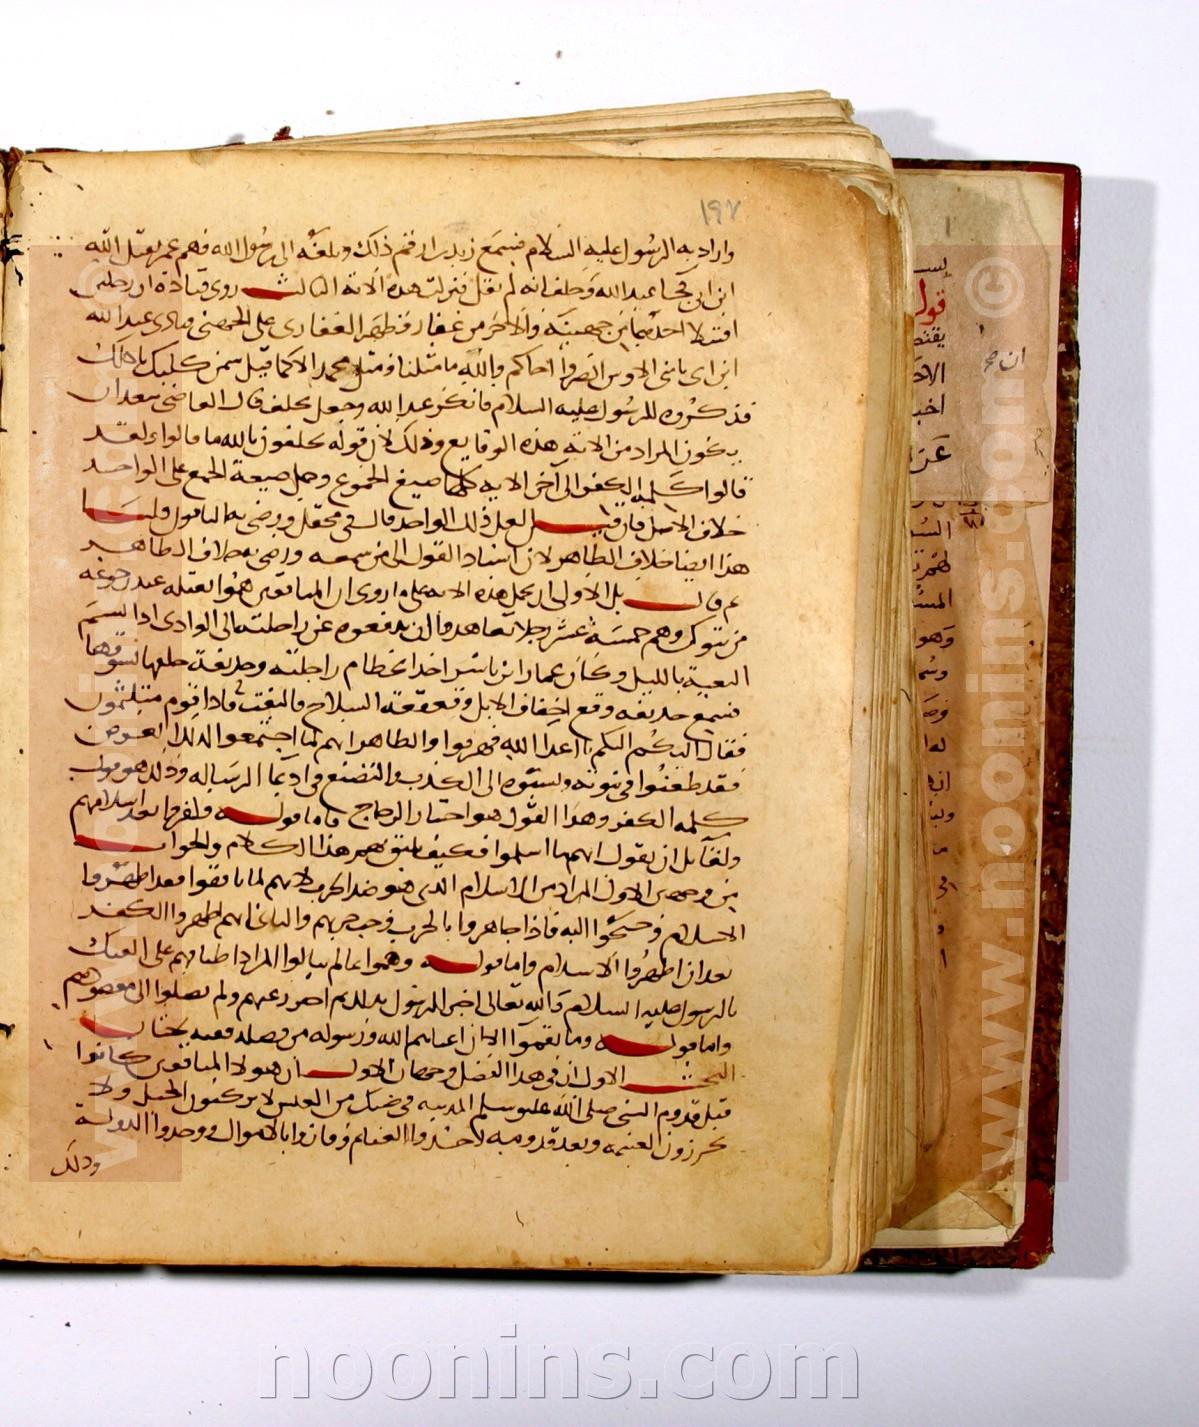 ١٩٧
واراد به الرسول عليه السلام فسمع زيد بن ارقم ذلك وبلغه الى رسول الله فهم عمر بقتل عبد الله
ابن ابي فجا عبد الله وحلف انه لم يقل فنزلت هذه الآية الثالث روى قتادة ان رجلين
اقتتلا احدهما من جهينة والآخر من غفار فظهر الغفارى على الجهنى فنادى عبد الله
ابن ابى يا بنى الاوس انصروا اخاكم والله ما مثلنا ومثل محمد الا كما قيل سمن كلبك ياكلك
فذكروه للرسول عليه السلام فانكر عبد الله وجعل يحلف قال القاضى يبعد ان
يكون المراد من الآية هذه الوقايع وذلك لان قوله يحلفون بالله ما قالوا ولقد
قالوا كلمة الكفر الى آخر الاية كلها صيغ الجموع وحمل صيغة الجمع على الواحد
خلاف الاصل فان قيل لعل ذلك الواحد قال في محفل ورضى به الباقون قلنا
هذا ايضا خلاف الظاهر لان اسناد القول الى من سمعه ورضى به خلاف الظاهر
ثم قال بل الاولى ان يحمل هذه الاية على ما روى ان المنافقين هموا بقتله عند رجوعه
من تبوك وهم خمسة عشر رجلا تعاهدوا ان يدفعوه عن راحلته الى الوادى اذا تسنم
العقبة بالليل وكان عمار ابن ياسر اخذا بخطام راحلته وحذيفة خلفها يسوقها
فسمع حذيفه وقع اخفاف الابل وقعقعة السلاح فالتفت فاذا قوم متلثمون
فقال اليكم اليكم يا اعدا الله فهربوا والظاهر انهم لما اجتمعوا لذلك الغرض
فقد طعنوا في نبوته ونسبوه الى الكذب والتصنع في ادعا الرسالة وذلك هو قول
كلمة الكفر وهذا القول هو اختيار الزجاج فاما قوله وكفروا بعد اسلامهم
ولقائل ان يقول انهم ما اسلموا فكيف يليق بهم هذا الكلام والجواب
من وجهين الاول المراد من الاسلام الذى هو ضد الحرب لانهم لما نافقوا فقد اظهروا
الاسلام وجنحوا اليه فاذا جاهروا بالحرب وجب حربهم والثانى انهم اظهروا الكفر
بعد ان اظهروا الاسلام واما قوله وهموا بما لم ينالوا المراد اطباقهم على الفتك
بالرسول عليه السلام والله تعالى اخبر الرسول بذلك حتى احترز عنهم ولم يصلوا الى مقصودهم
واما قوله وما نقموا الا ان اغناهم الله ورسوله من فضله ففيه بحثان
البحث الاول ان في هذا الفضل وجهان الاول ان هولا المنافقين كانوا
قبل قدوم النبى صلى الله عليه وسلم المدينة في ضنك من العيش لا يركبون الخيل ولا
يحرزون الغنيمة وبعد قدومه اخذوا الغنايم وفازوا بالاموال ووجدوا الدولة
وذلك
ان صح
قول
www.noonins.com ©
noonins.com